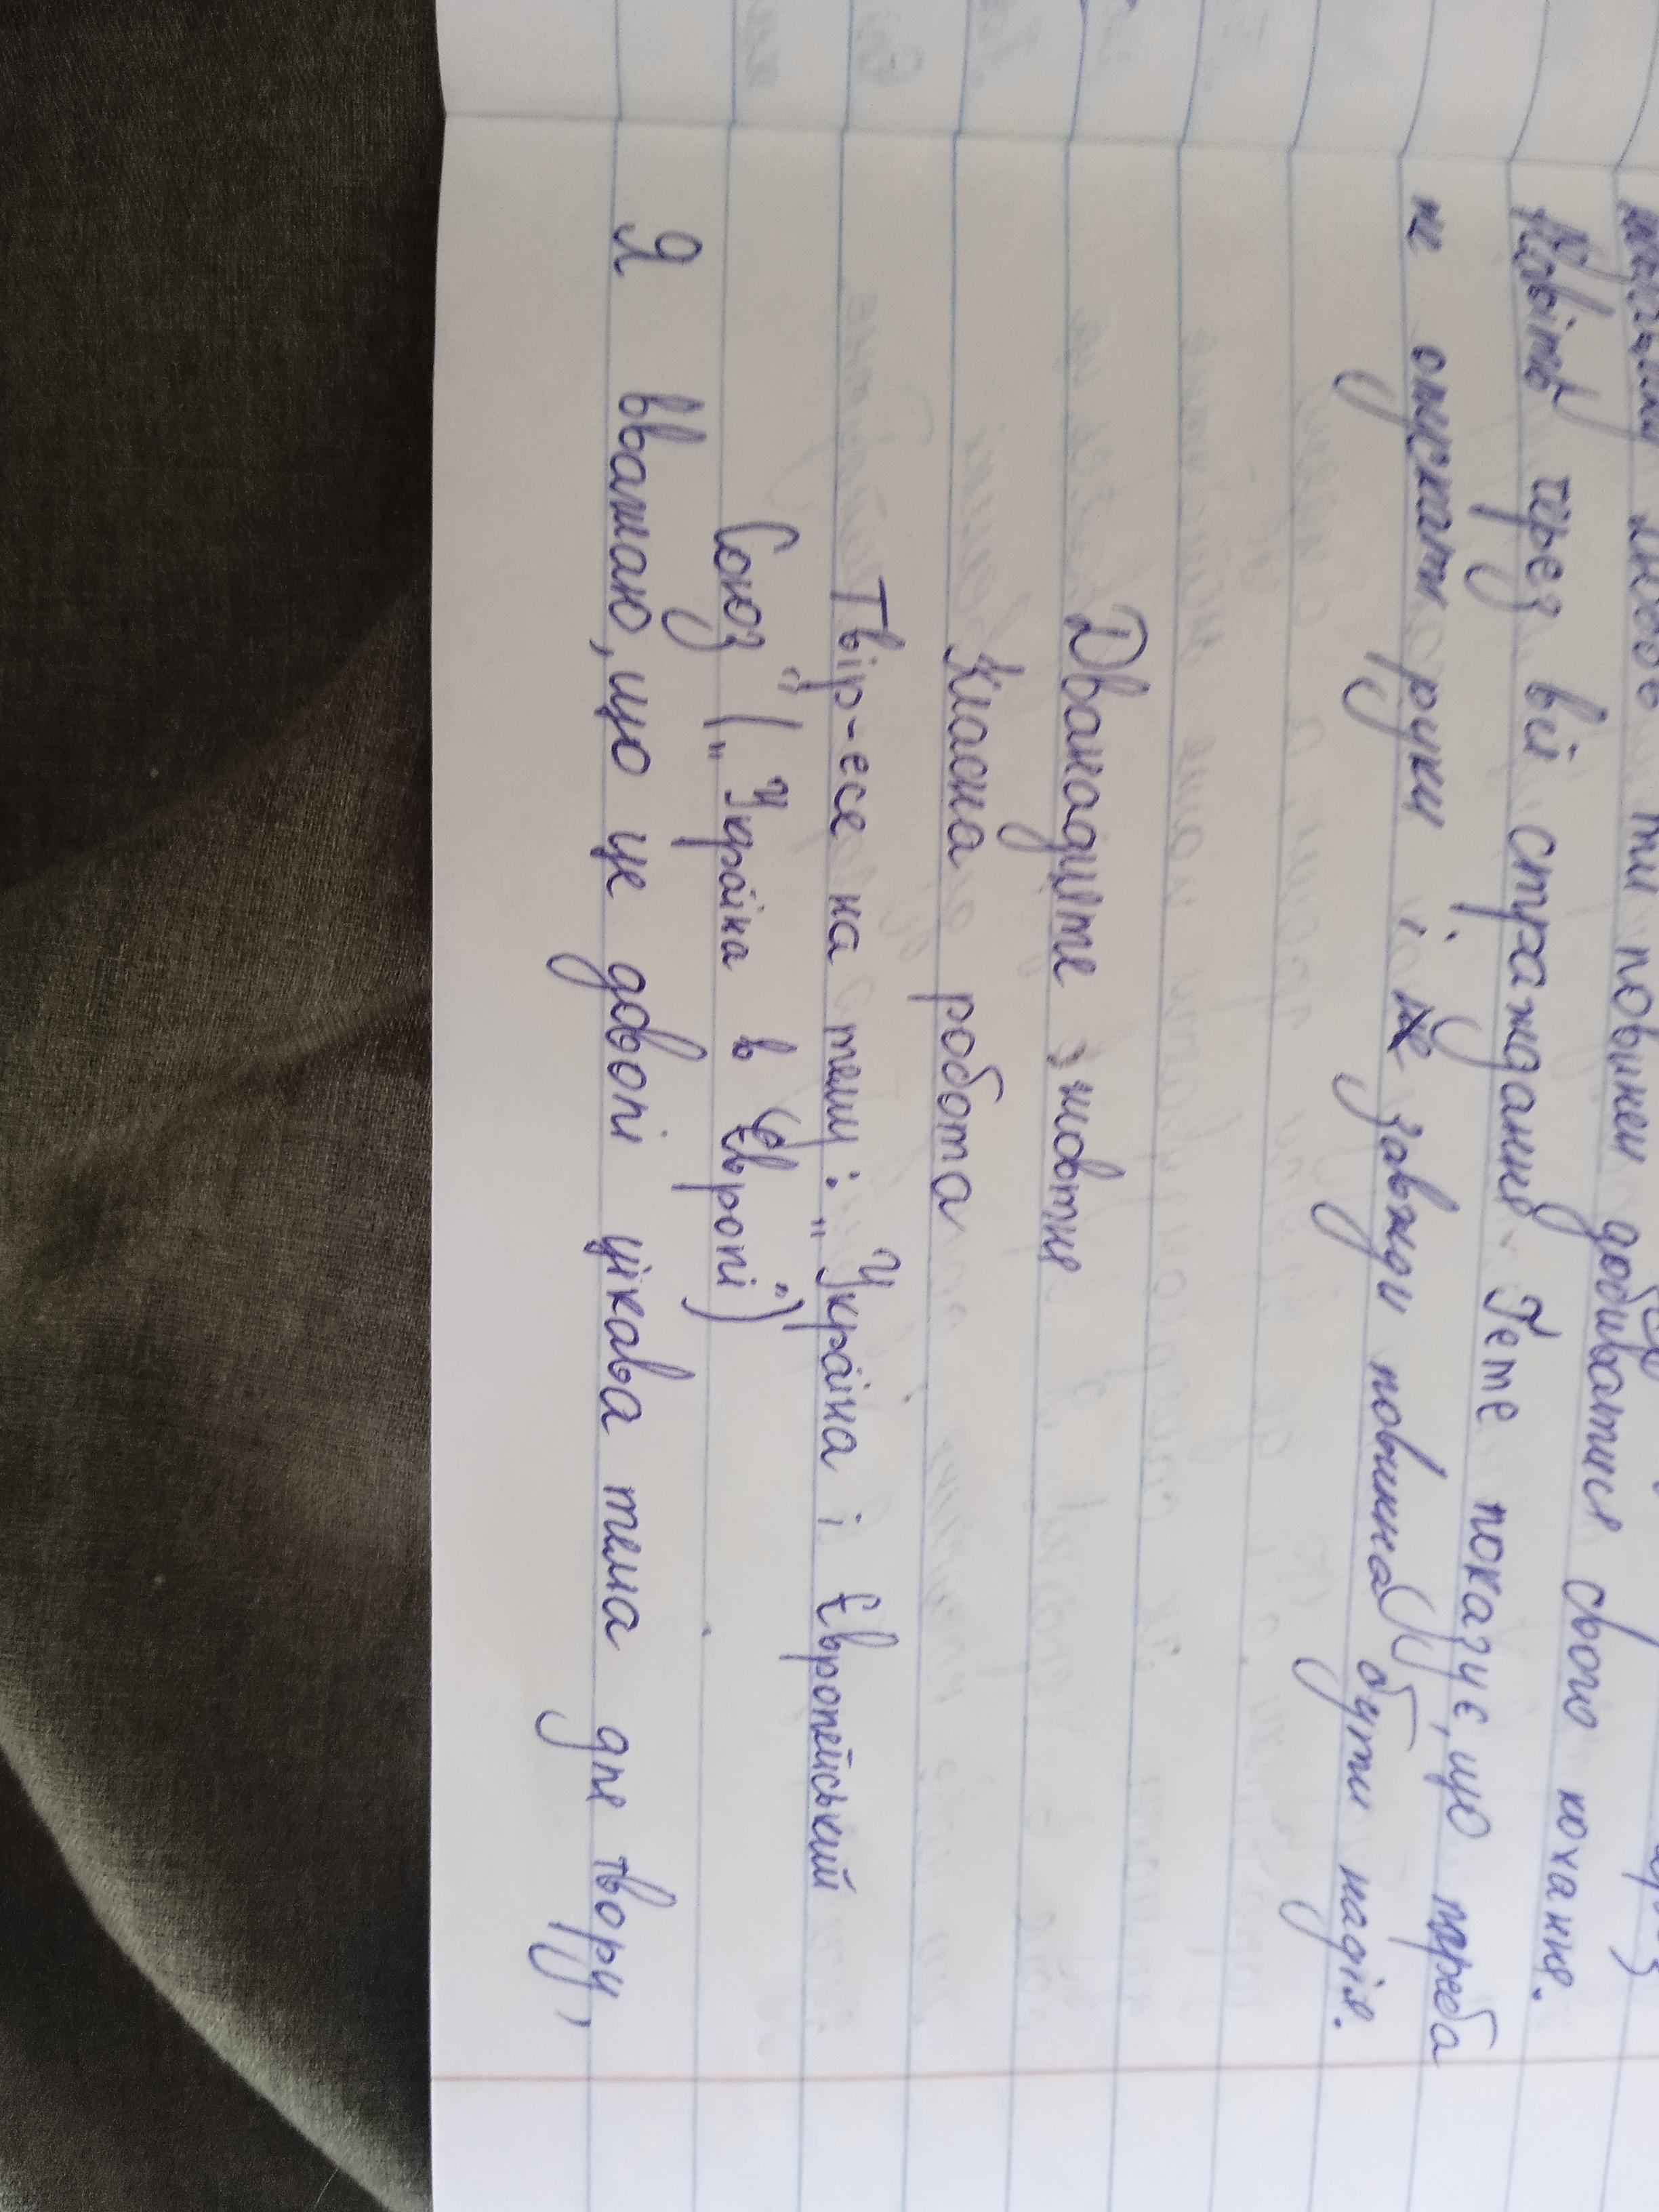 ти повинен добиватися свого кохання.
Навіть через всі страждання. Гете показує, що треба
не опускати руки і завжди повинна бути надія.
Дванадцяте жовтня
Класна робота
Твір-есе на тему: „Україна і Європейський
Союз" („Україна в Європі")
Я вважаю, що це доволі цікава тема для твору,